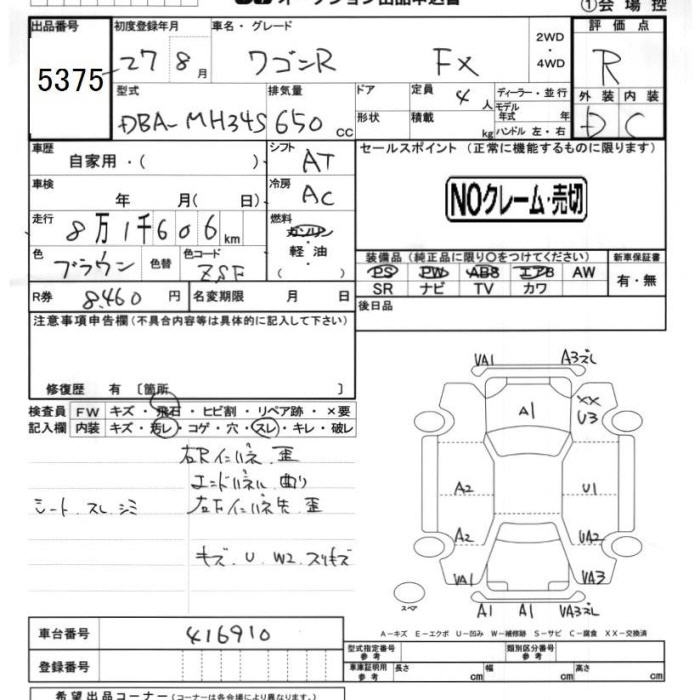 ①会場控
出品番号 初度登録年月 車名・グレード 評価点
5375 27 8月 ワゴンR FX 2WD・4WD R
型式 排気量 ドア 定員 4人 ディーラー・並行 外装 内装
DBA-MH34S 650cc 形状 積載 kg モデル年式 年 D C
ハンドル 左・右
車歴 自家用・( ) シフト AT セールスポイント (正常に機能するものに限ります)
車検 年 月( 日) 冷房 AC NOクレーム・売切
走行 8万1千606km 燃料 ガソリン
軽・油
( )
色 ブラウン 色替 色コード ZSF 装備品(純正品に限り○をつけてください) 新車保証書
PS PW ABS エアB AW 有・無
SR ナビ TV カワ
R券 8,460円 名変期限 月 日 後日品
注意事項申告欄(不具合内容等は具体的に記入して下さい)
修復歴 有 [箇所 ]
検査員 FW キズ・飛石・ヒビ割・リペア跡・×要
記入欄 内装 キズ・汚レ・コゲ・穴・スレ・キレ・破レ
右Rインパネ 歪
エンドパネル 曲り
シート スレ シミ
キズ U W2 スリキズ
VA1 A3ズレ
A1 XX U3
A2 U1
A2 UA2
VA1 VA3
スペア A1 A1 VA3ズレ
A-キズ E-エクボ U-凹み W-補修跡 S-サビ C-腐食 XX-交換済
車台番号 416910
登録番号
型式指定番号 参考 類別区分番号 参考
車庫証明用 参考 長さ cm 幅 cm 高さ cm
希望出品コーナー(コーナーは各会場により異なります。)